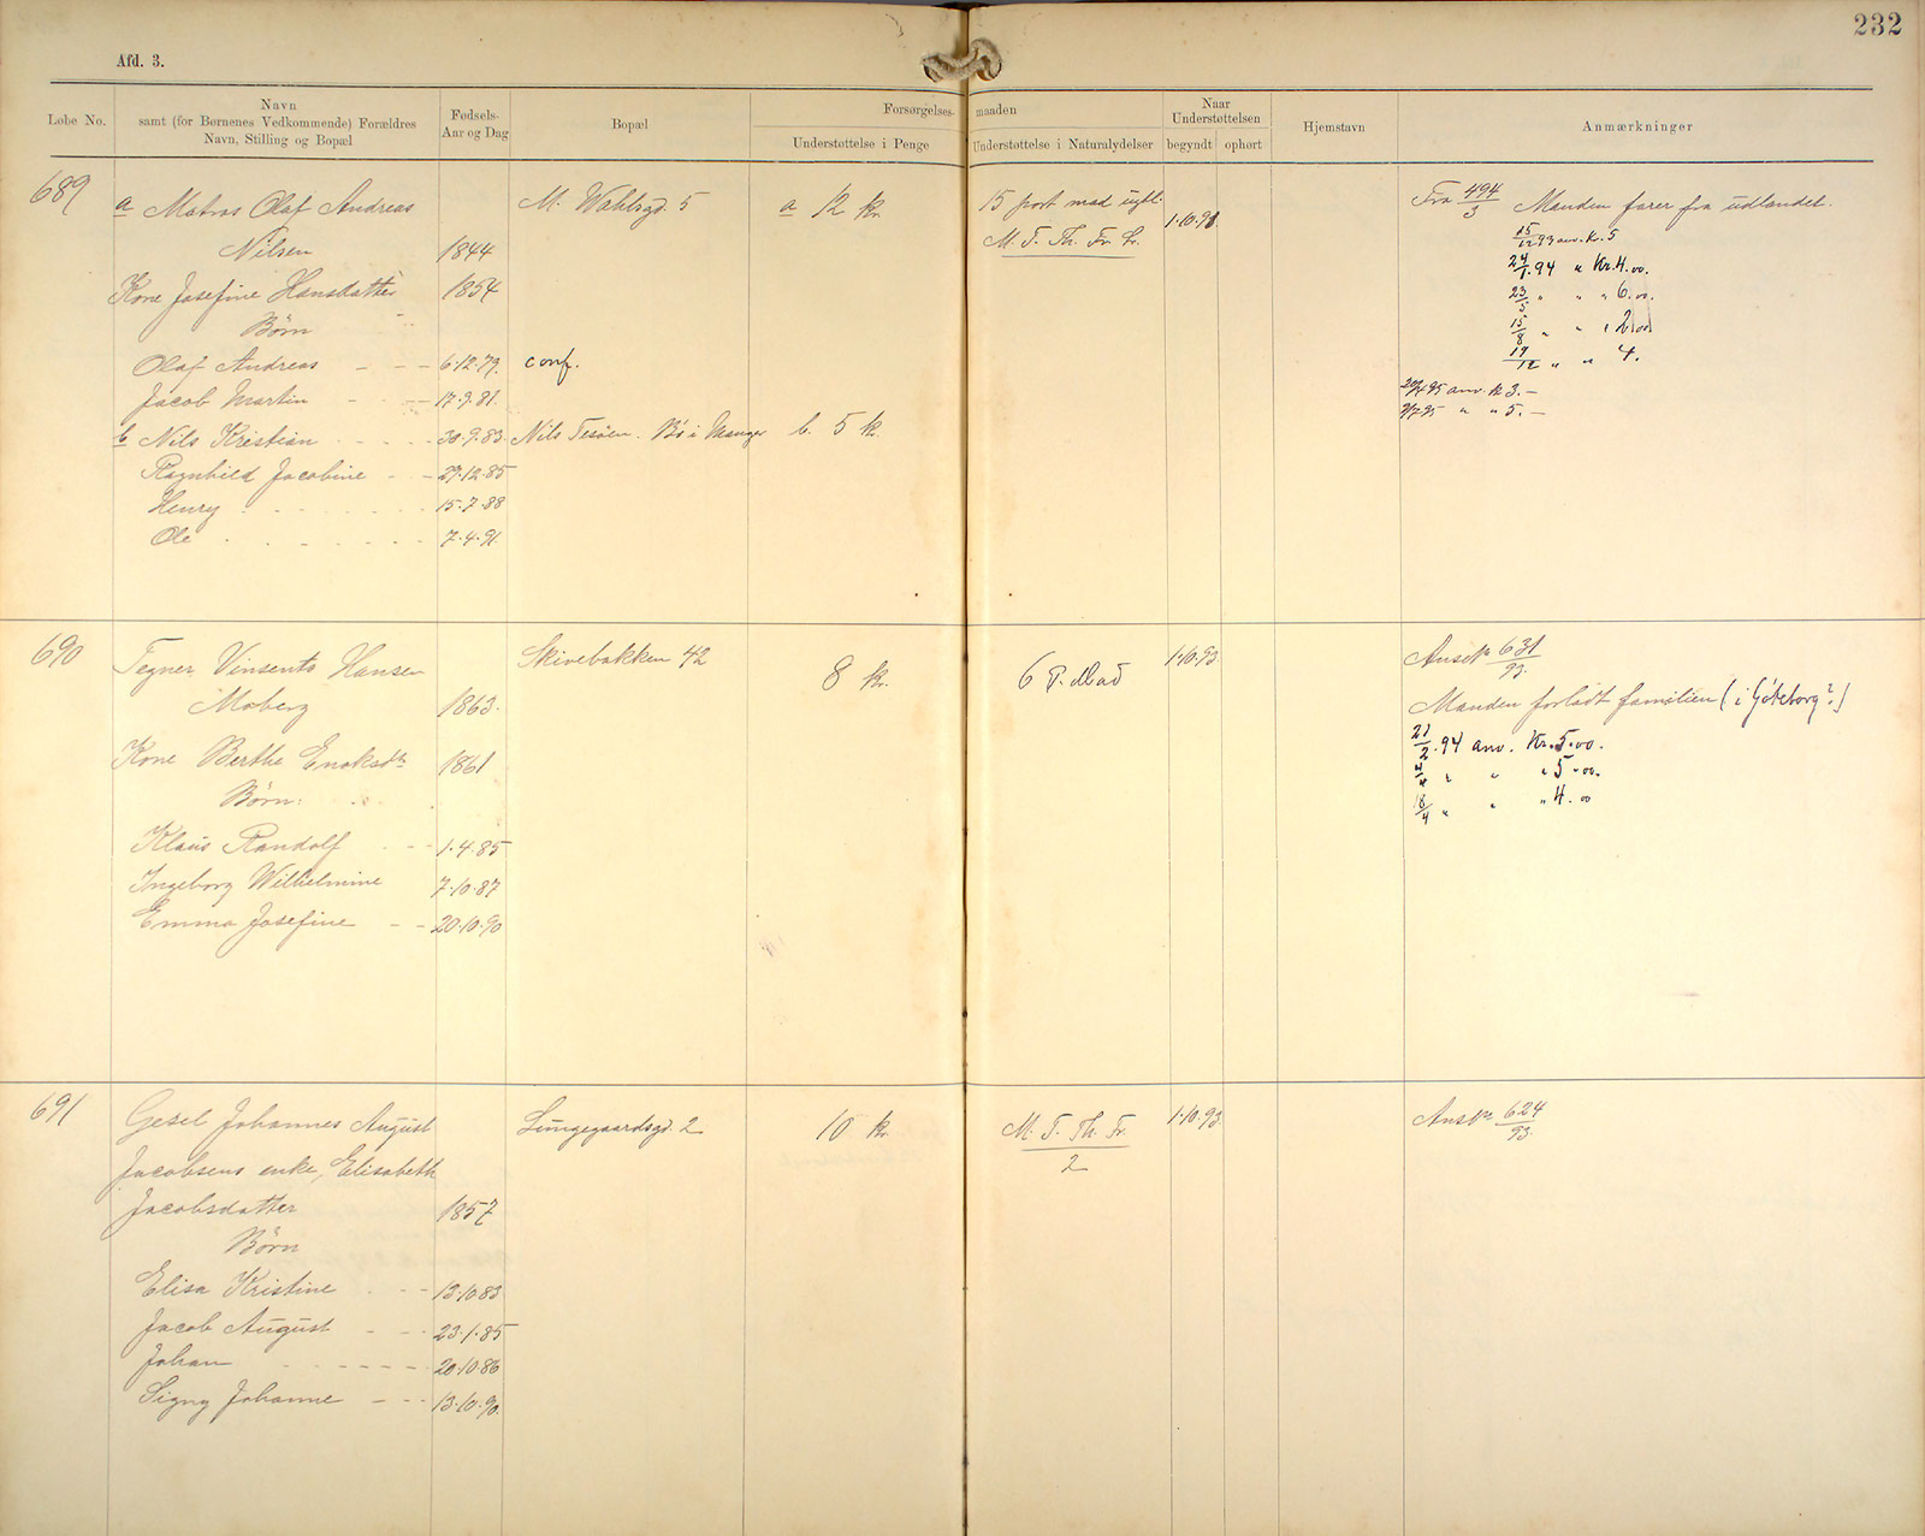 232
Afd. 3.
Løbe No.
Navn
samt (for Børnenes Vedkommende) Forældres
Navn, Stilling og Bopæl
Fødsels-
Aar og Dag
Bopæl
Forsørgelses-
maaden
Understøttelse i Penge
Understøttelse i Naturalydelser
Naar
Understøttelsen
begyndt
ophørt
Hjemstavn
Anmærkninger
689
a Matros Olaf Andreas
Nilsen 1844
Kone Josefine Hansdatter 1854
Børn
Olaf Andreas - - - 6.12.79. conf.
Jacob Martin - - - 17.9.81.
b Nils Kristian - - - 30.9.83. Nils Tesøen. Bø i Manger b. 5 k.
Ragnhild Jacobine - - 29.12.85
Henry - - - 15.7.88
Ole - - - 7.4.91.
M. Wahlsgd. 5
a 12 kr.
15 port mad ugtl.
M. T. Th. Fr. L.
1.10.93.
Fra 494/3 Manden farer fra udlandet.
15/12 93 anv. Kr. 5
24/1. 94 " Kr. 4.00.
23/5 " " " 6.00.
15/8 " " " 2.00
19/12 " " 4.
95 anv. k 3.-
2/7 95 " " 5.-
690
Tegner Vinsents Hansen
Moberg 1863.
Kone Berthe Enoksdtr 1861
Børn:
Klaus Randolf - - 1.4.85
Ingeborg Wilhelmine 7.10.87
Emma Josefine - - 20.10.90
Skivebakken 42
8 kr.
6 P. Mad
1.10.93.
Ansøkn 631/93.
Manden forladt familien (i Göteborg?)
21/2. 94 anv. Kr. 5.00.
4/4 " " " 5.00.
18/4 " " " 4.00
691
Gesel Johannes August
Jacobsens enke, Elisabeth
Jacobsdatter 1857
Børn
Elisa Kristine - - 13.10.83
Jacob August - - 23.1.85
Johan - - - 20.10.86
Signy Johanne - - - 13.10.90.
Lungegaardsgd. 2
10 kr.
M. T. Th. Fr.
2
1.10.93.
Ansøkn 624/93.